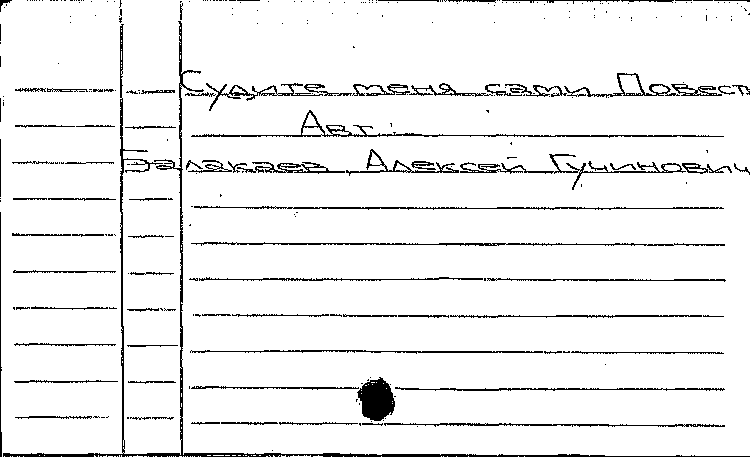 Судите меня сами Повест
Авт.:
Балакаев Алексей Гучинович